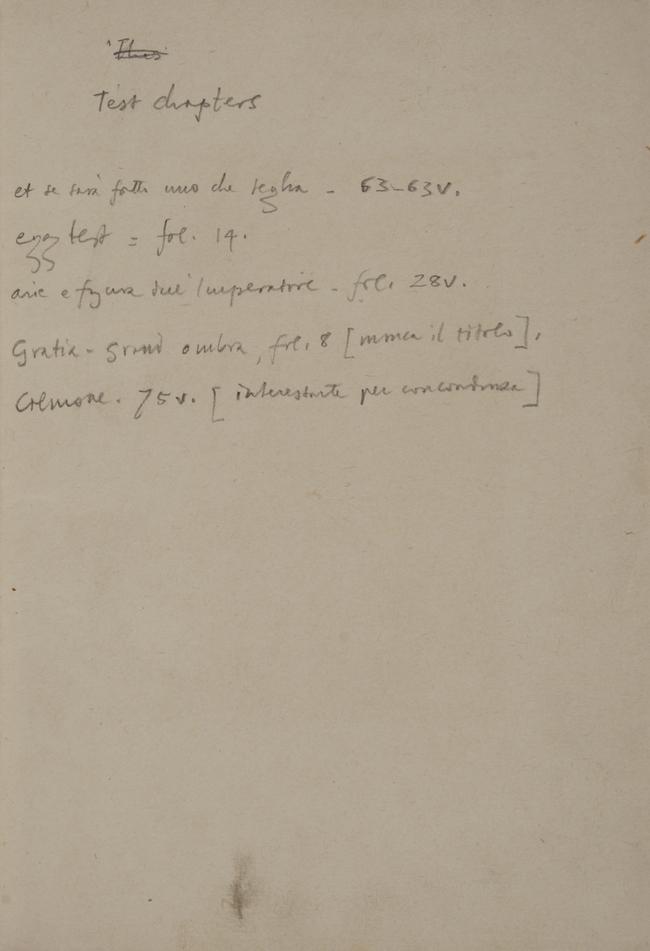 Test chapters
et se sarà fatto uno che teglia - 63-63v.
test = fol. 14.
arie e figura dell'Imperatore - fol. 28v.
Gratia - grand ombra, fol. 8 [manca il titolo].
Cremone. 75v. [interessante per concordanza]